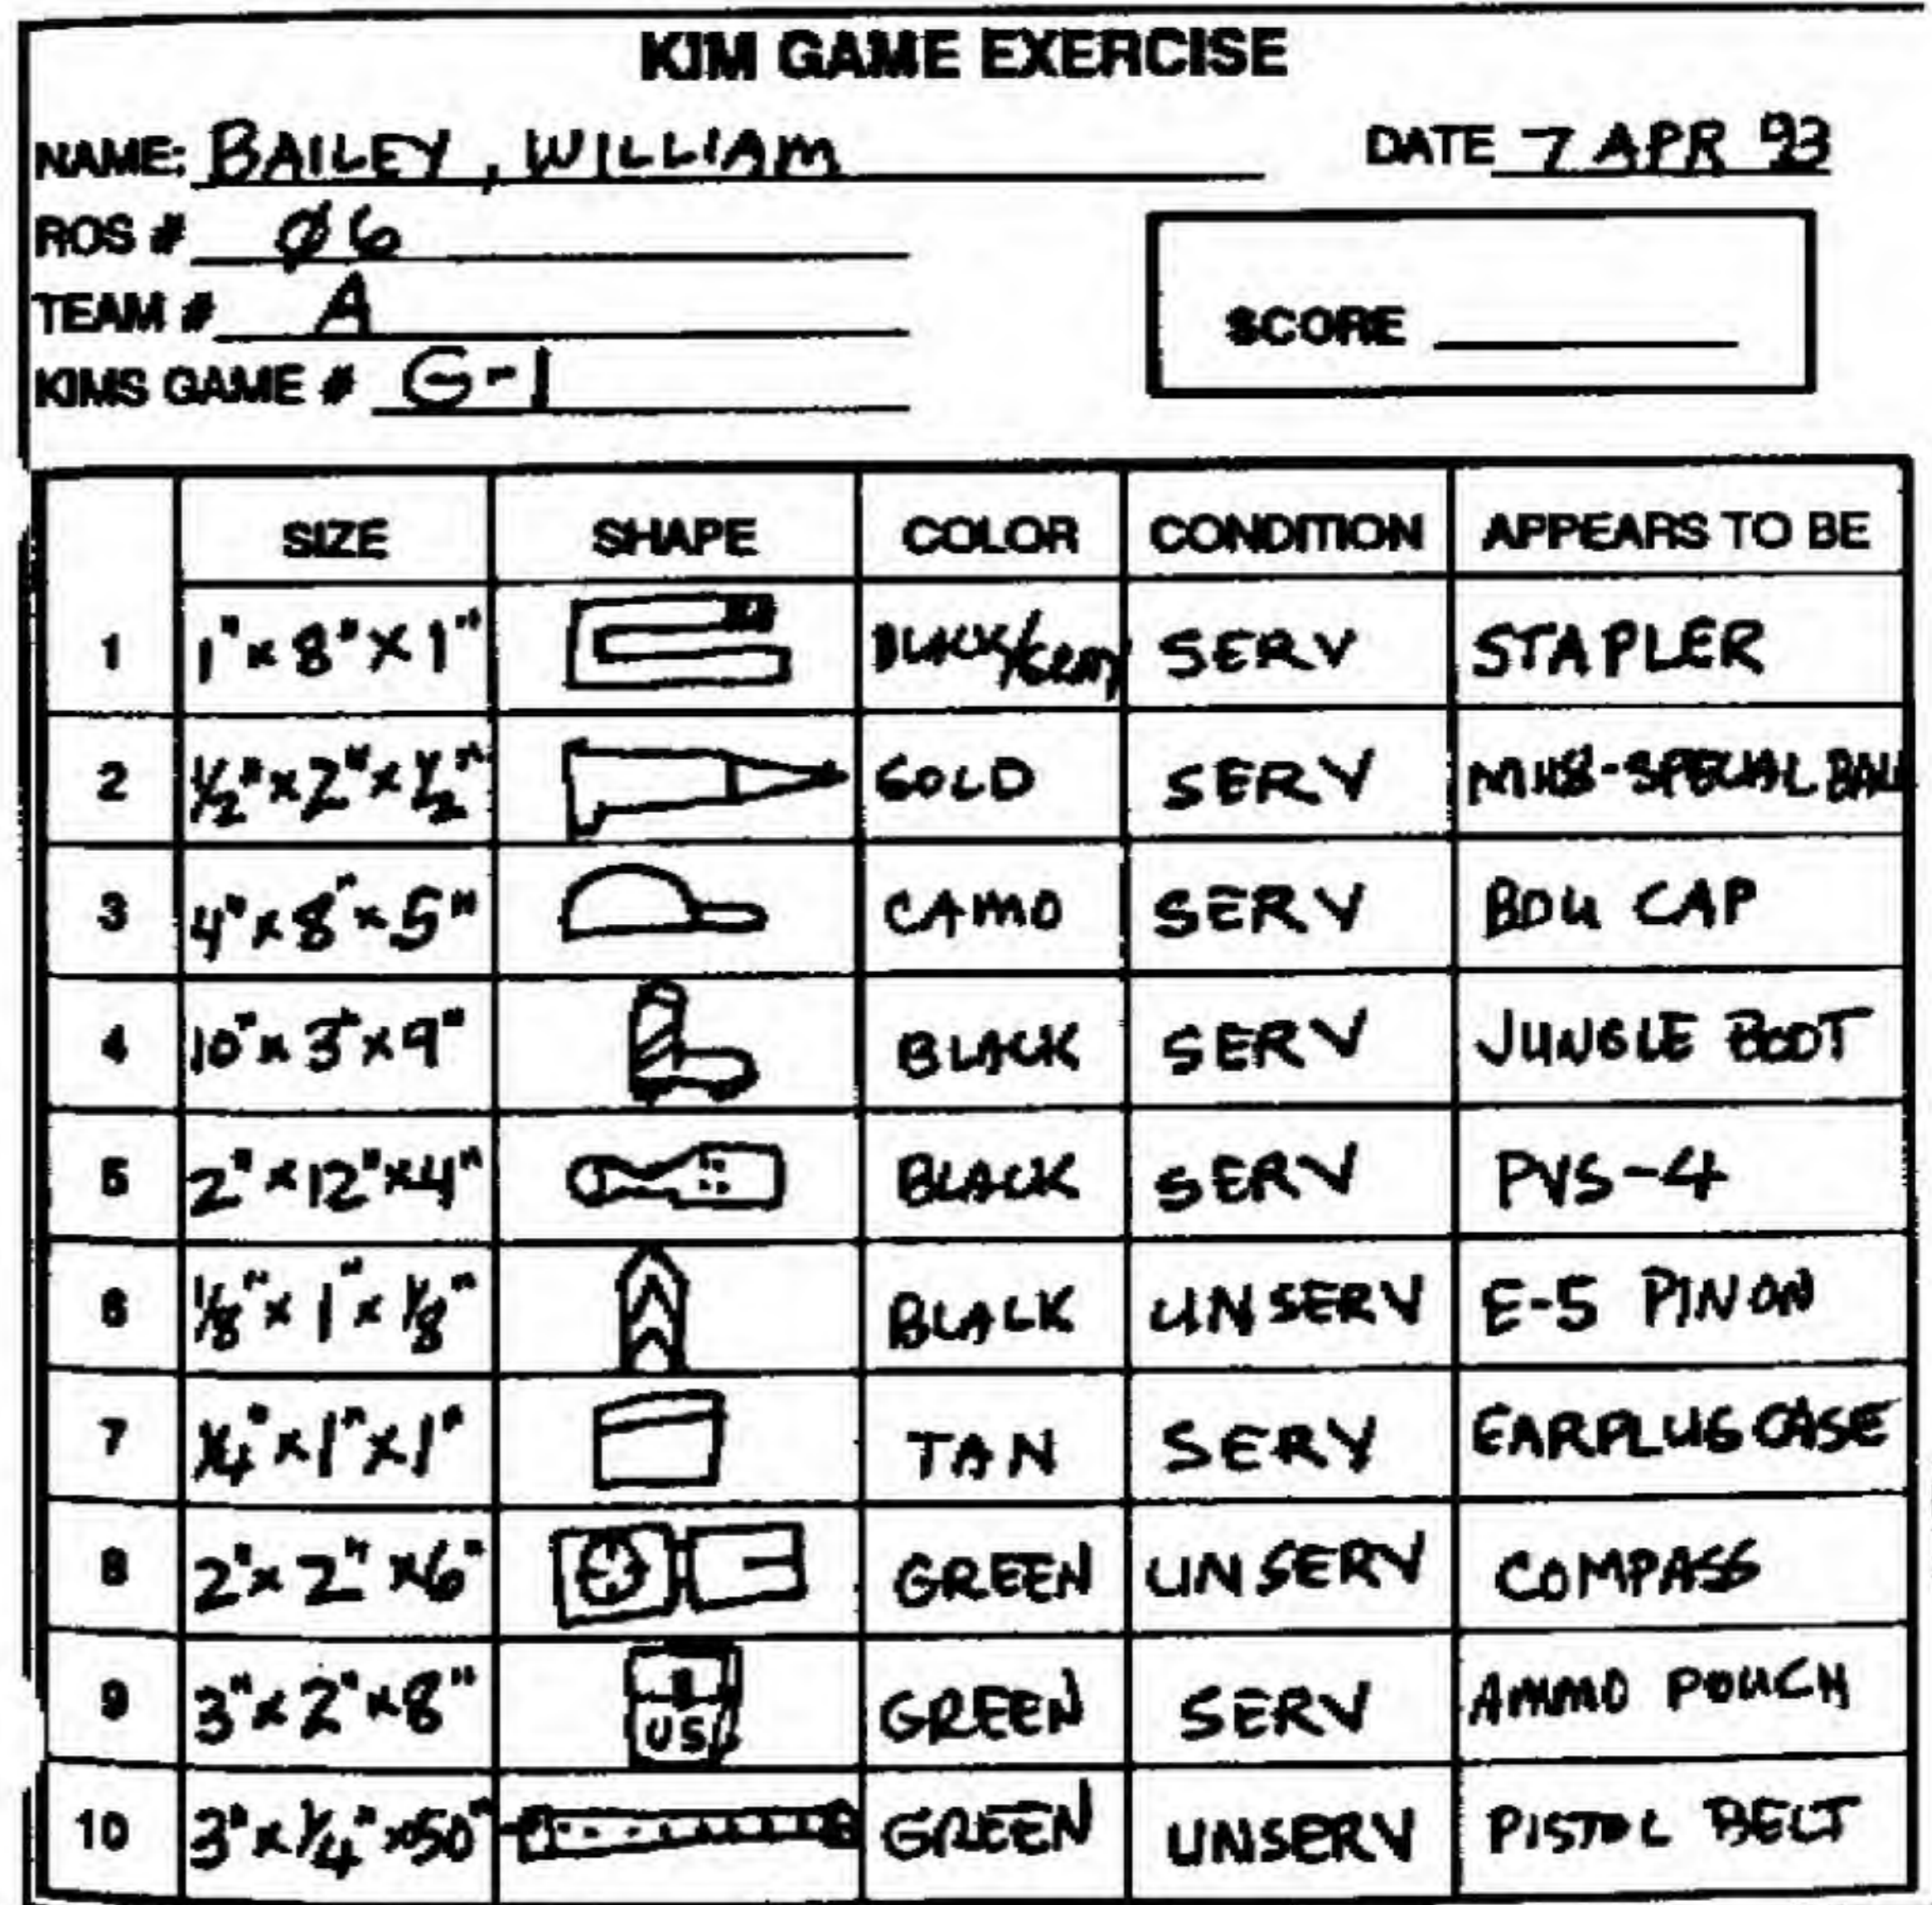 KIM GAME EXERCISE
NAME: BAILEY, WILLIAM DATE 7 APR 93
ROS # Ø6
TEAM # A
SCORE
KIMS GAME # G-1
SIZE SHAPE COLOR CONDITION APPEARS TO BE
1 1" x 8" x 1" BLACK/GRAY SERV STAPLER
2 1/2" x 2" x 1/2" GOLD SERV M118-SPECIAL BALL
3 4" x 8" x 5" CAMO SERV BDU CAP
4 10" x 3" x 9" BLACK SERV JUNGLE BOOT
5 2" x 12" x 4" BLACK SERV PVS-4
6 1/8" x 1" x 1/8" BLACK UNSERV E-5 PIN ON
7 1/4" x 1" x 1" TAN SERV EARPLUG CASE
8 2" x 2" x 6" GREEN UNSERV COMPASS
9 3" x 2" x 8" US GREEN SERV AMMO POUCH
10 3" x 1/4" x 50" GREEN UNSERV PISTOL BELT